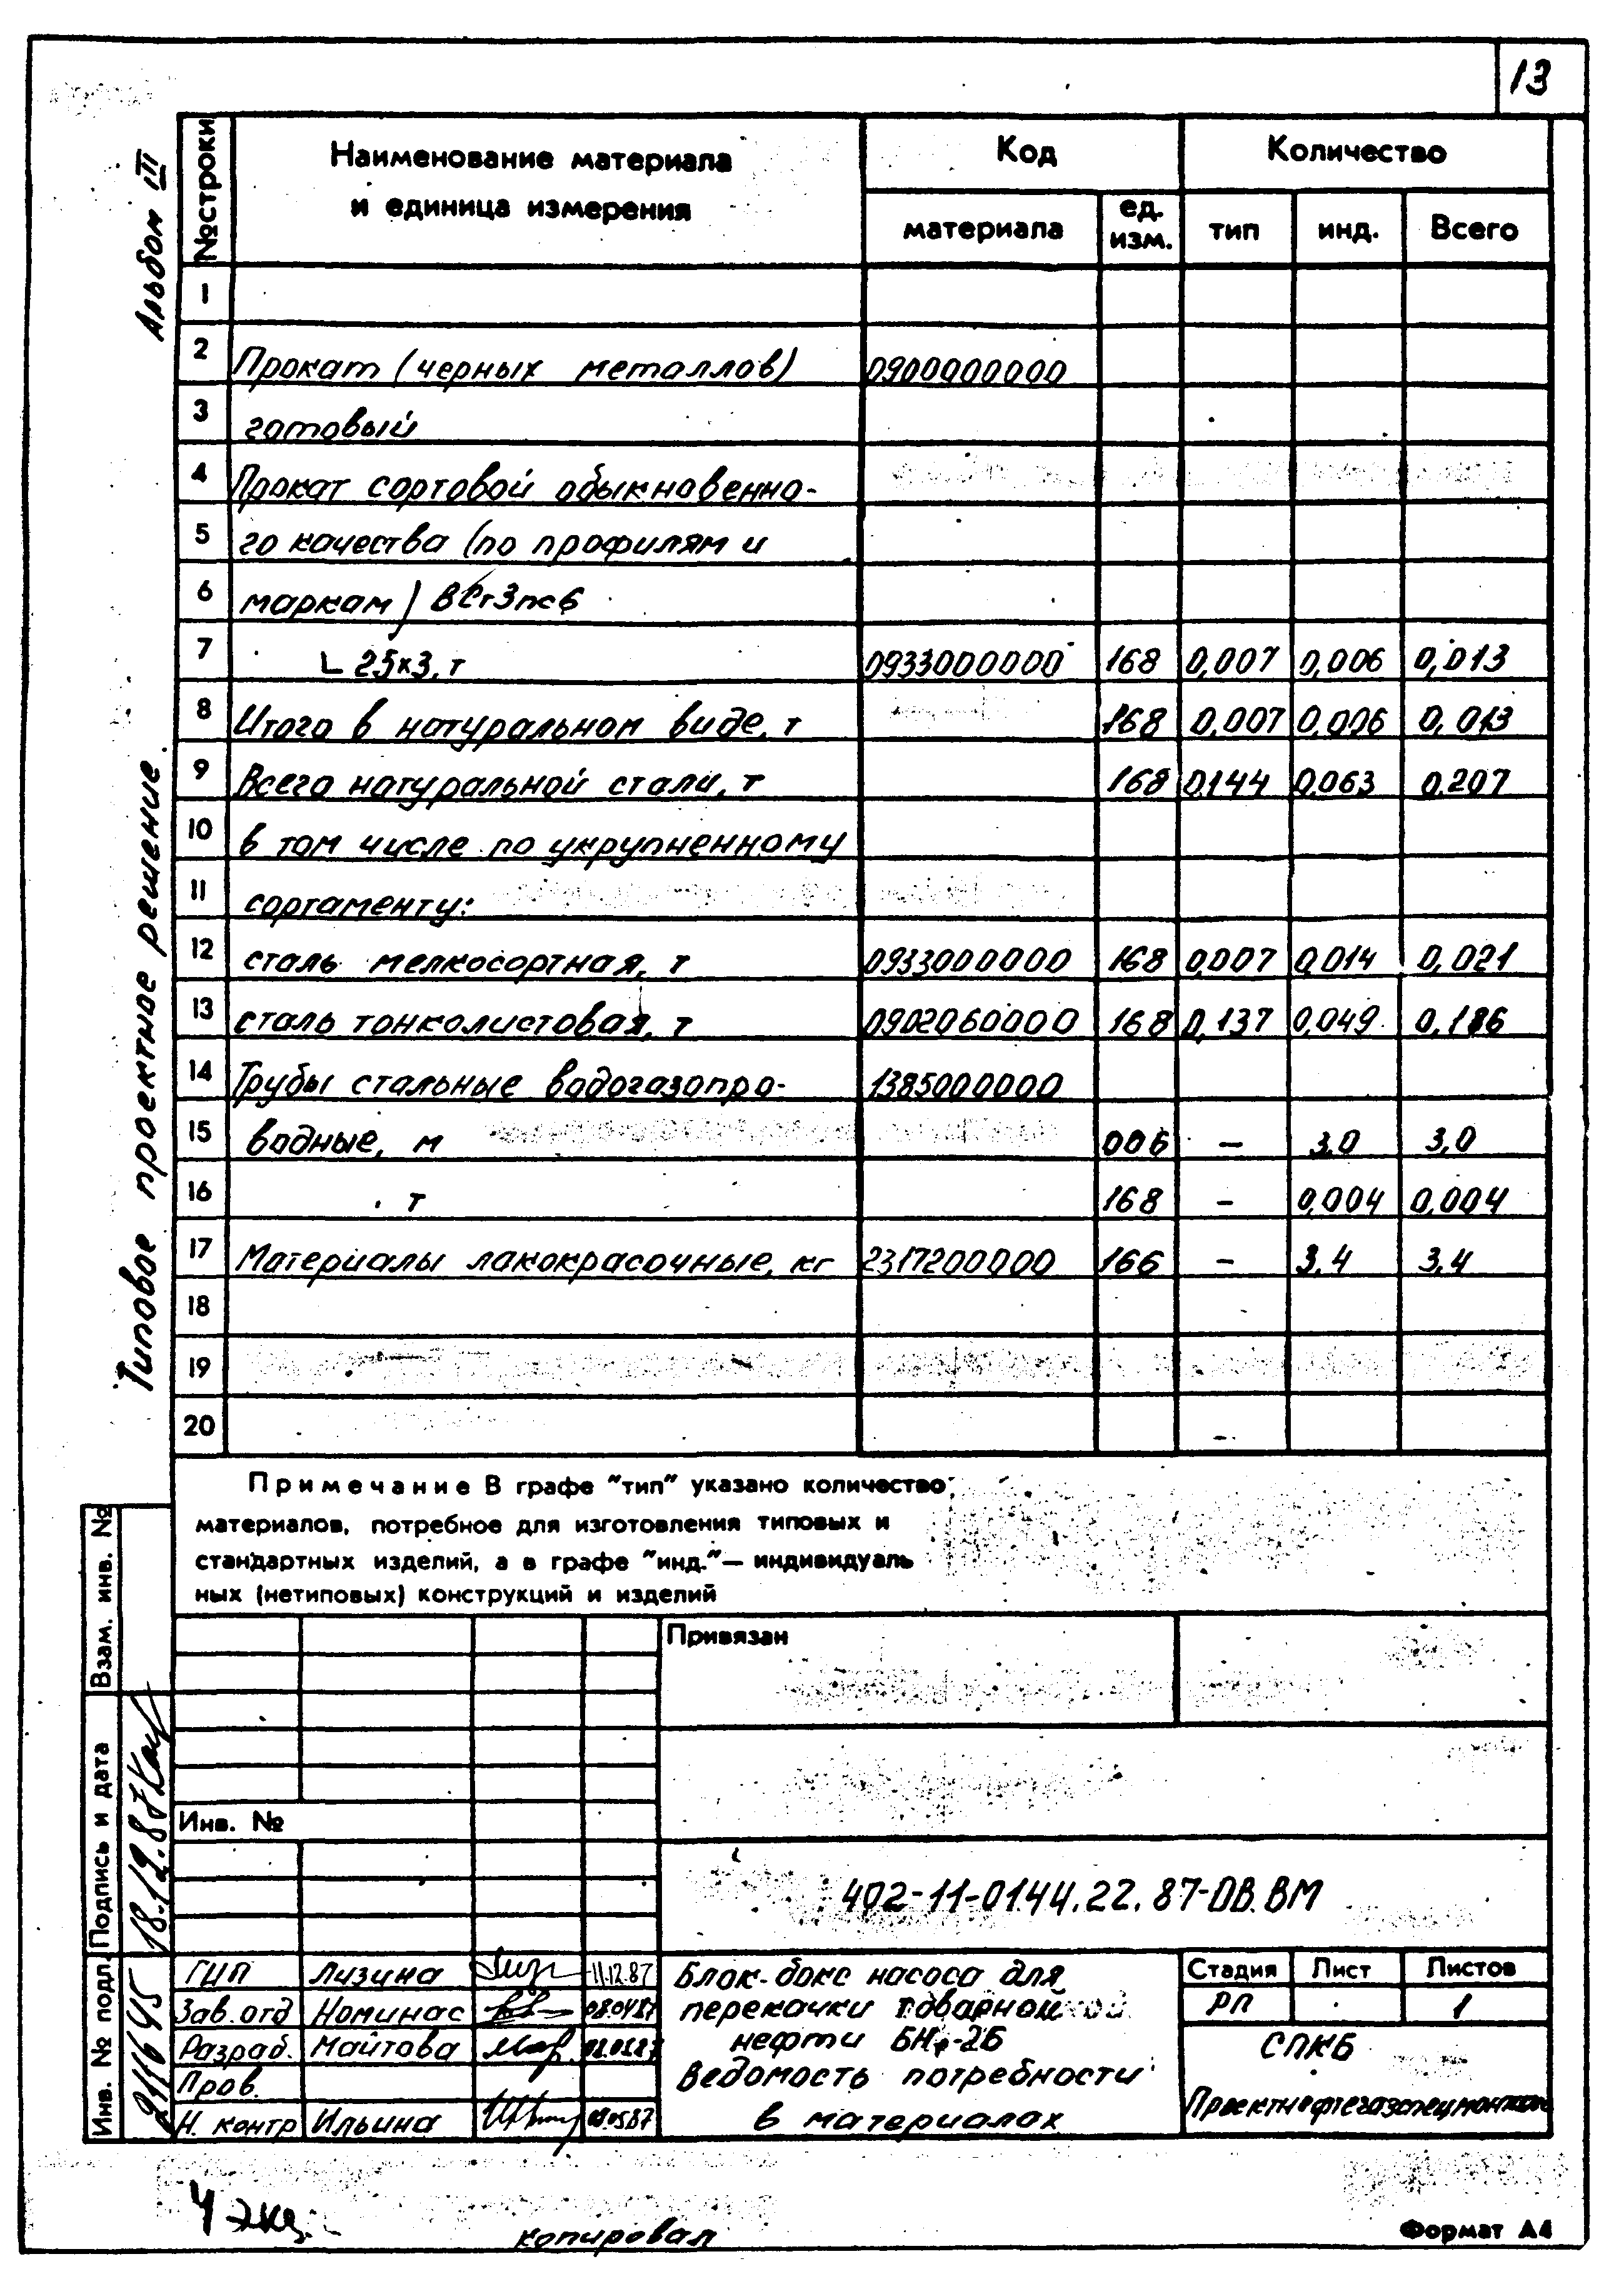 13
Альбом III
Типовое проектное решение
№ строки
Наименование материала
и единица измерения
Код
Количество
материала
ед.
изм.
тип
инд.
Всего
1
2 Прокат (черных металлов) 0900000000
3 готовый
4 Прокат сортовой обыкновенно-
5 го качества (по профилям и
6 маркам) ВСт3пс6
7 L 25х3, т 0933000000 168 0,007 0,006 0,013
8 Итого в натуральном виде, т 168 0,007 0,006 0,013
9 Всего натуральной стали, т 168 0,144 0,063 0,207
10 в том числе по укрупненному
11 сортаменту:
12 сталь мелкосортная, т 0933000000 168 0,007 0,014 0,021
13 сталь тонколистовая, т 0902060000 168 0,137 0,049 0,186
14 Трубы стальные водогазопро- 1385000000
15 водные, м 006 – 3,0 3,0
16 т 168 – 0,004 0,004
17 Материалы лакокрасочные, кг 2317200000 166 – 3,4 3,4
18
19
20
Примечание В графе "тип" указано количество
материалов, потребное для изготовления типовых и
стандартных изделий, а в графе "инд."– индивидуаль
ных (нетиповых) конструкций и изделий
Взам. инв. №
Подпись и дата
18.12.87
Инв. № подл.
Привязан
Инв. №
402-11-0144.22.87-ОВ.ВМ
ГИП Лизина 11.12.87
Зав. отд Номинас 08.04.87
Разраб. Майтова
Пров.
Н. контр Ильина
Блок-бокс насоса для
перекачки товарной
нефти БНт-2Б
Ведомость потребности
в материалах
Стадия Лист Листов
РП 1
СПКБ
Проектнефтегазспецмонтаж
4 экз.
копировал
Формат А4